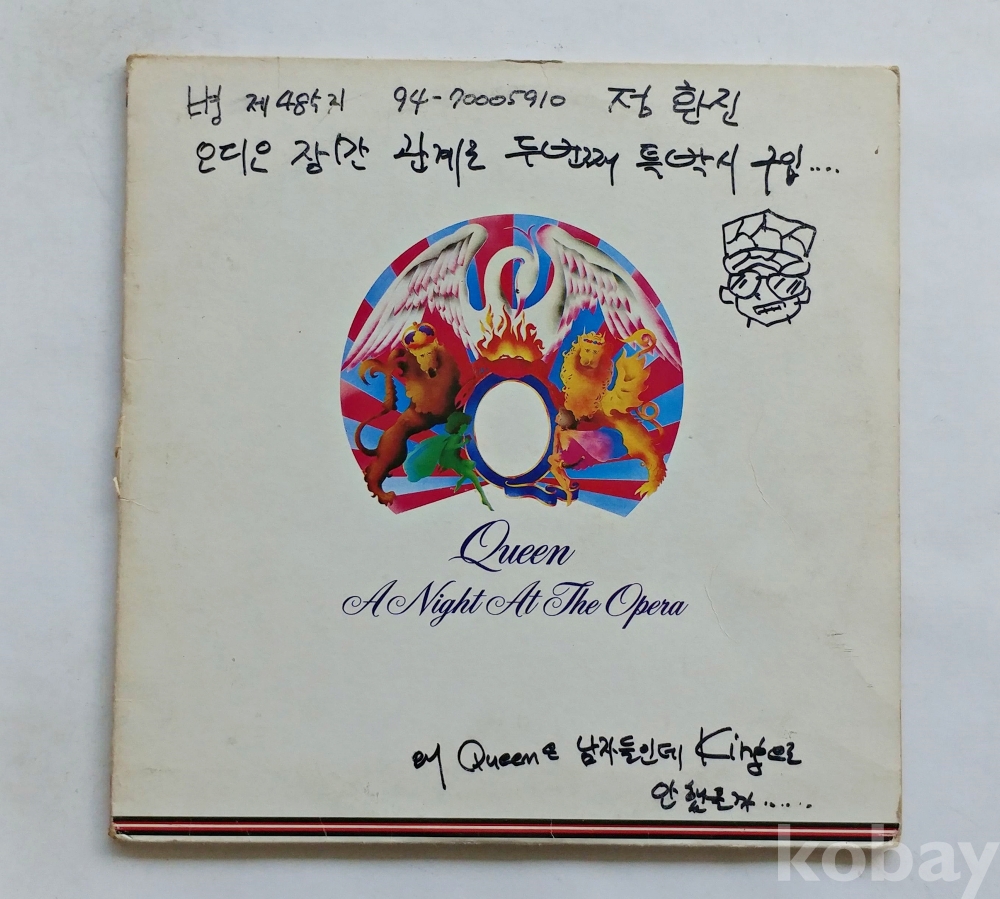 병 제48박지 94-70005910 정환진
오디오 장!간 관계로 두번째 특박시 구입....
Queen
A Night At The Opera
왜 Queen은 남자들인데 King으로
안 했을까......
kobay